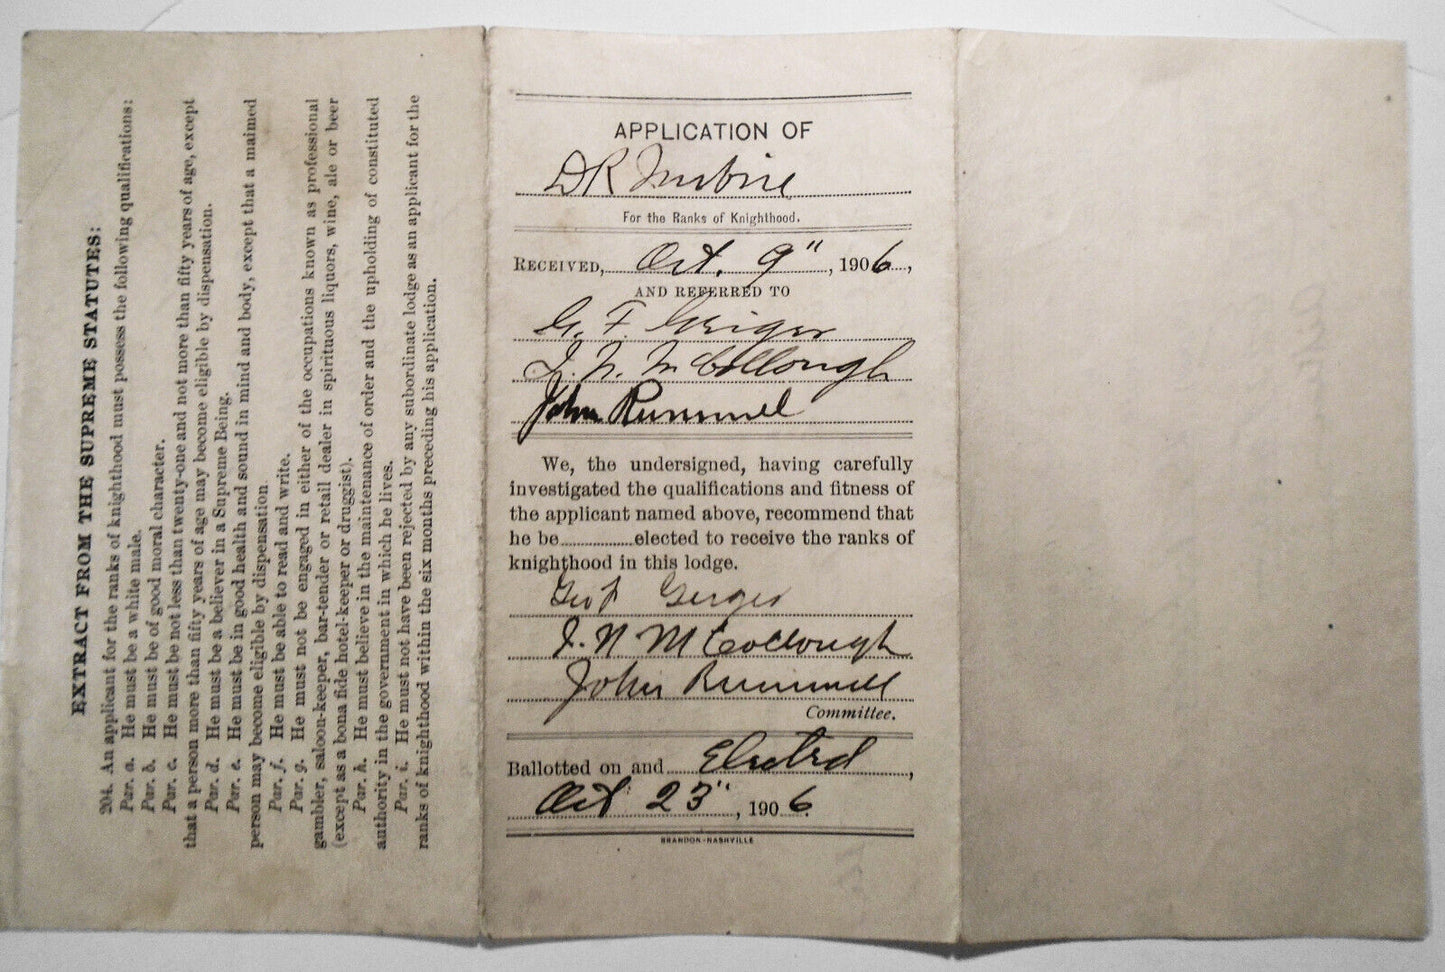 EXTRACT FROM THE SUPREME STATUTES:
204. An applicant for the ranks of knighthood must possess the following qualifications:
Par. a. He must be a white male.
Par. b. He must be of good moral character.
Par. c. He must be not less than twenty-one and not more than fifty years of age, except
that a person more than fifty years of age may become eligible by dispensation.
Par. d. He must be a believer in a Supreme Being.
Par. e. He must be in good health and sound in mind and body, except that a maimed
person may become eligible by dispensation.
Par. f. He must be able to read and write.
Par. g. He must not be engaged in either of the occupations known as professional
gambler, saloon-keeper, bar-tender or retail dealer in spirituous liquors, wine, ale or beer
(except as a bona fide hotel-keeper or druggist).
Par. h. He must believe in the maintenance of order and the upholding of constituted
authority in the government in which he lives.
Par. i. He must not have been rejected by any subordinate lodge as an applicant for the
ranks of knighthood within the six months preceding his application.
APPLICATION OF
DR
For the Ranks of Knighthood.
RECEIVED, Oct. 9", 1906,
AND REFERRED TO
G. F.
J. N. McCollough
John Rummel
We, the undersigned, having carefully
investigated the qualifications and fitness of
the applicant named above, recommend that
he be elected to receive the ranks of
knighthood in this lodge.
Geo F
J. N McCollough
John Rummell
Committee.
Ballotted on and Elected,
Oct 23", 1906.
BRANDON-NASHVILLE